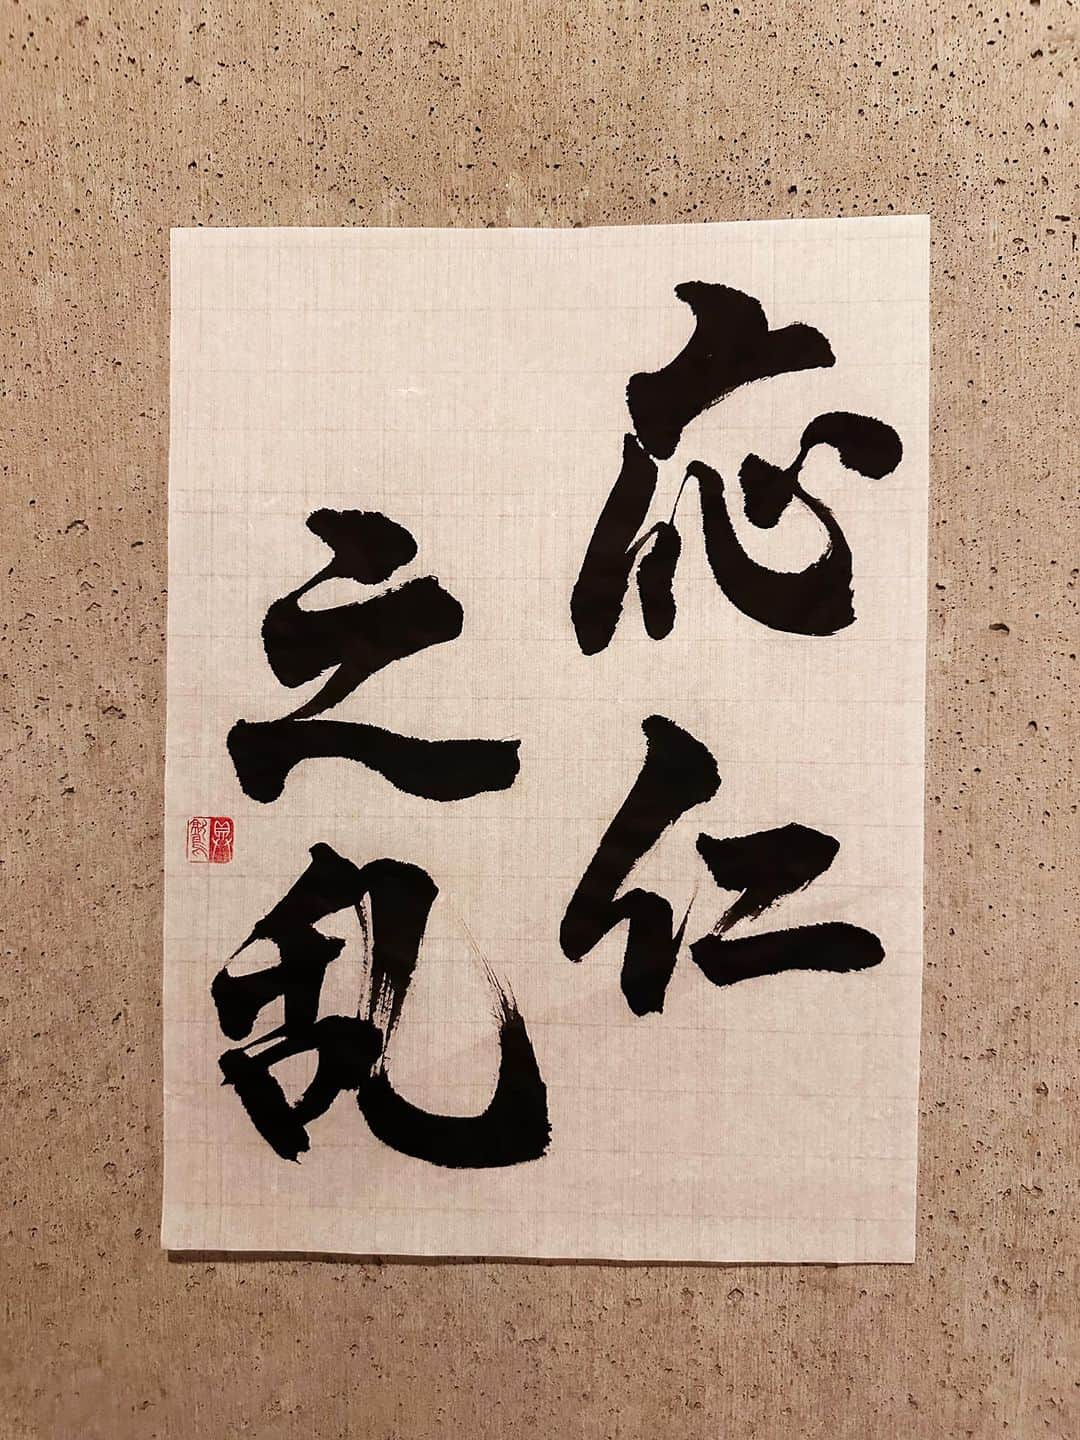 応仁
之乱